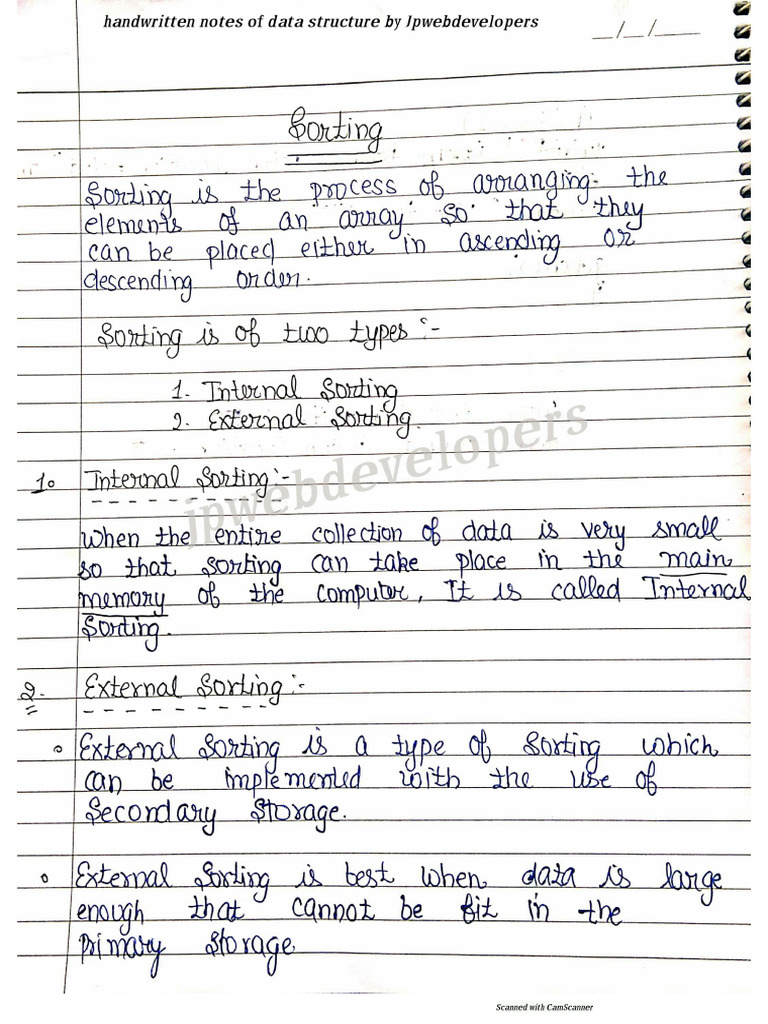 handwritten notes of data structure by Jpwebdevelopers
__/__/____
Sorting
Sorting is the process of arranging the
elements of an array so that they
can be placed either in ascending or
descending order.
Sorting is of two types :-
1. Internal Sorting
2. External Sorting.
jpwebdevelopers
1. Internal Sorting :-
When the entire collection of data is very small
so that sorting can take place in the main
memory of the computer, It is called Internal
Sorting.
2. External Sorting :-
External Sorting is a type of Sorting which
can be implemented with the use of
Secondary Storage.
External Sorting is best when data is large
enough that cannot be fit in the
primary Storage.
Scanned with CamScanner